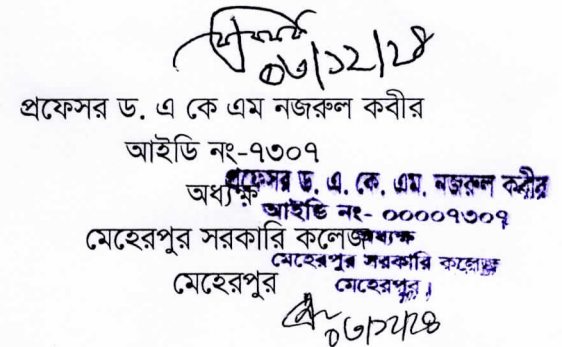 ০৩/১২/২৪
প্রফেসর ড. এ কে এম নজরুল কবীর
আইডি নং-৭৩০৭
অধ্যক্ষ
মেহেরপুর সরকারি কলেজ
মেহেরপুর
প্রফেসর ড. এ. কে. এম. নজরুল কবীর
আইডি নং- ০০০০৭৩০৭
অধ্যক্ষ
মেহেরপুর সরকারি কলেজ
মেহেরপুর।
০৩/১২/২৪